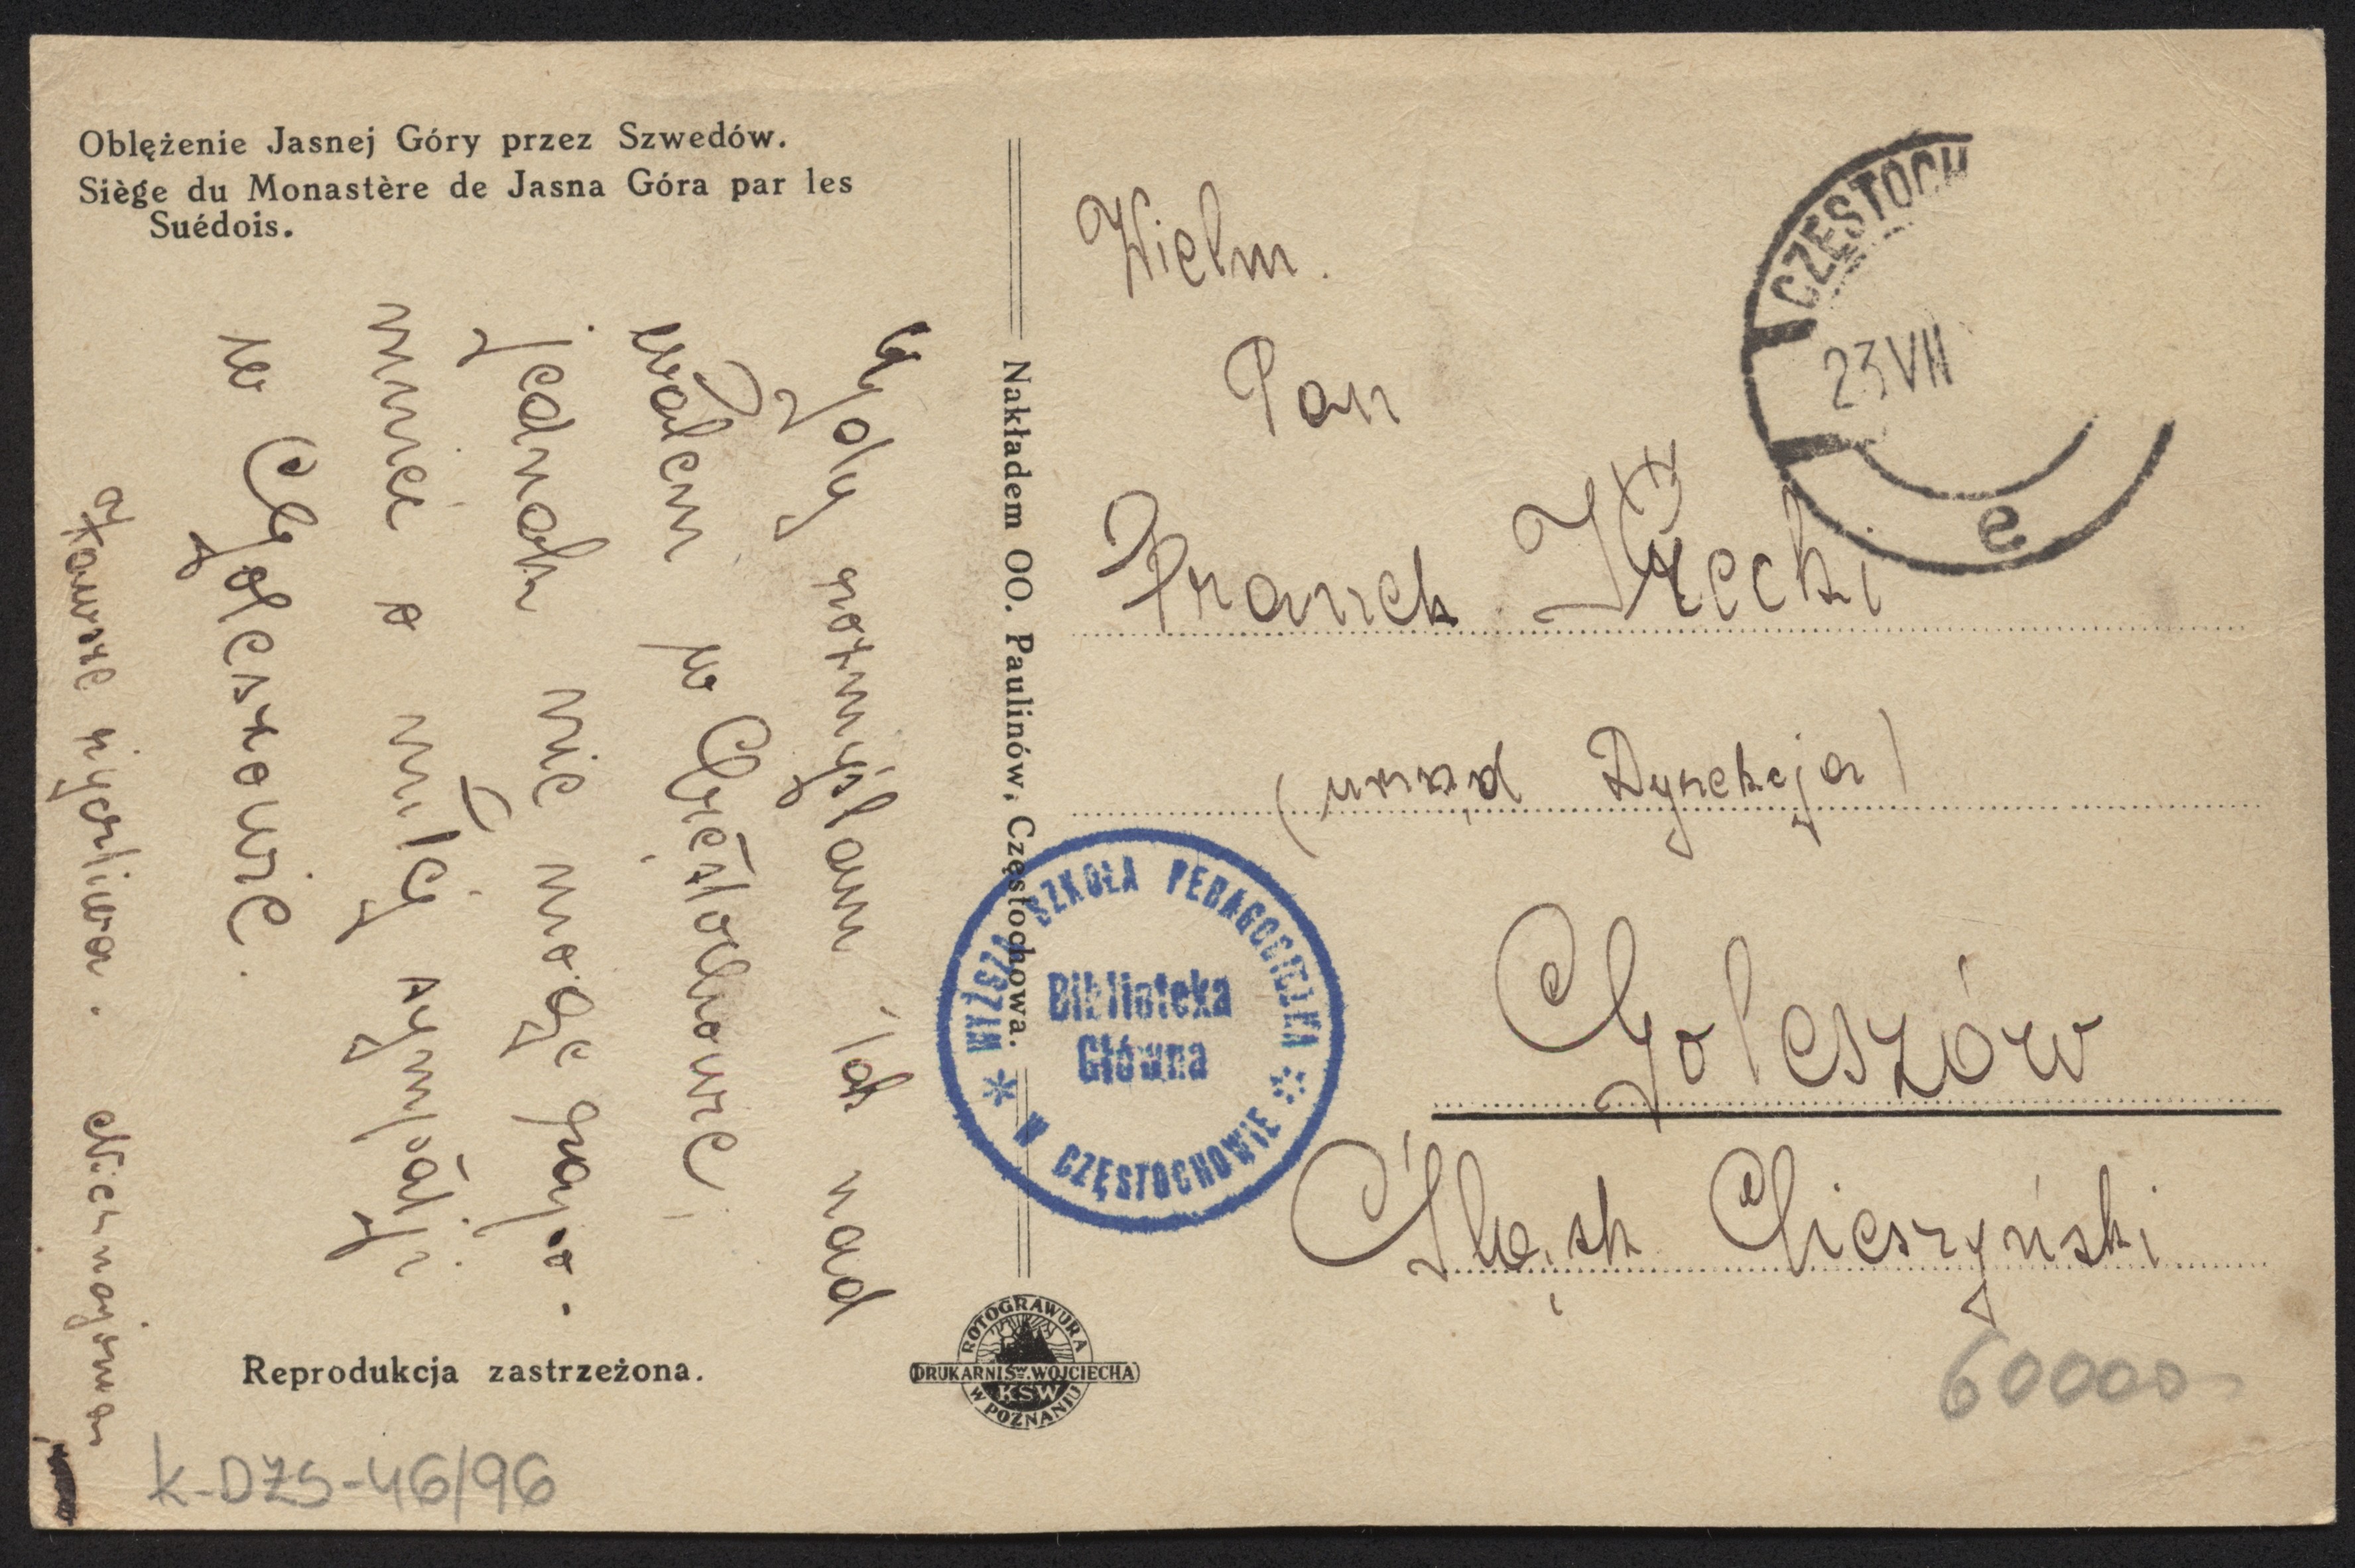 Oblężenie Jasnej Góry przez Szwedów.
Siège du Monastère de Jasna Góra par les
Suédois.
Gdy rozmyślam tak nad
walem w Częstochowie,
jednak nie mogę pojąć.
mnie o miłej sympatji
w Goleszowie.
zawsze życzliwa. Nieznajoma
Reprodukcja zastrzeżona.
K-DŻS-46/96
Nakładem OO. Paulinów, Częstochowa.
WYŻSZA SZKOŁA PEDAGOGICZNA
Biblioteka
Główna
W CZĘSTOCHOWIE
ROTOGRAWURA
DRUKARNI ŚW. WOJCIECHA
KSW
W POZNANIU
CZĘSTOCH
23 VII
e
Wielm.
Pan
Franek
(urząd Dyrekcja)
Goleszów
Śląsk Cieszyński
60000